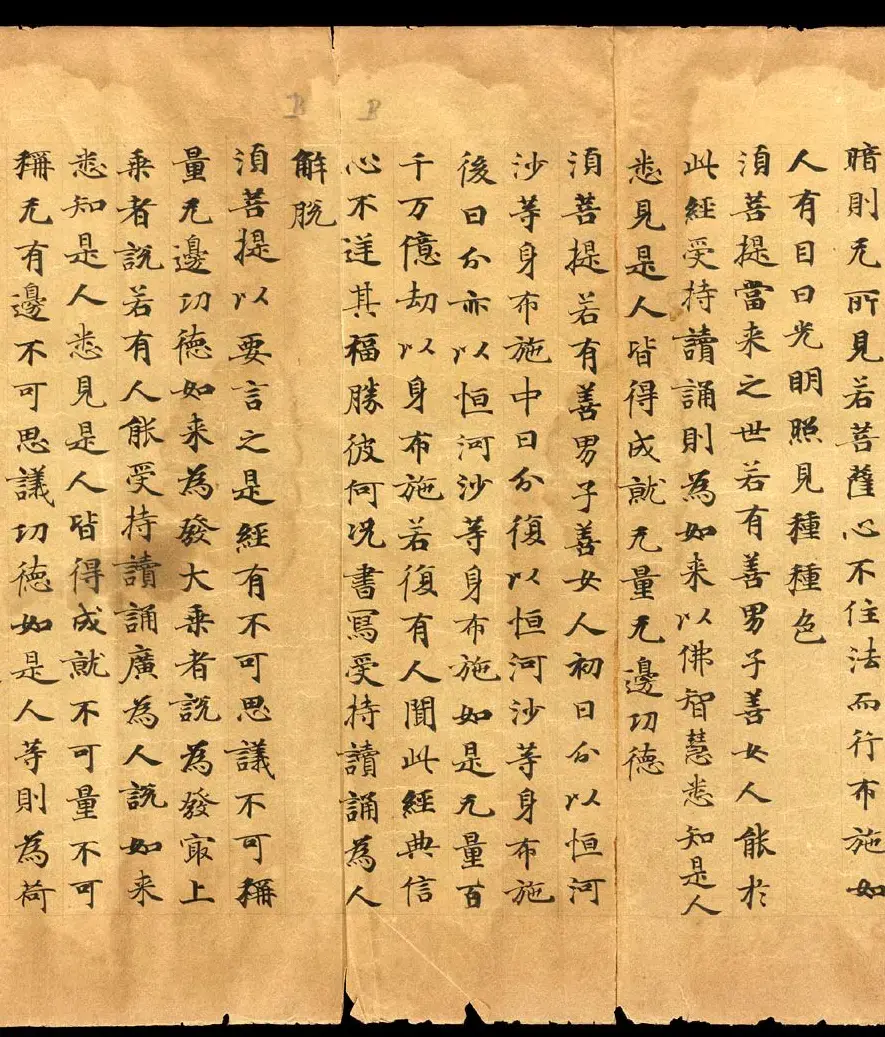 暗則无所見若菩薩心不住法而行布施如
人有目日光明照見種種色
湏菩提當来之世若有善男子善女人能於
此經受持讀誦則為如来以佛智慧悉知是人
悉見是人皆得成就无量无邊功德
湏菩提若有善男子善女人初日分以恒河
沙等身布施中日分復以恒河沙等身布施
後日分亦以恒河沙等身布施如是无量百
千万億劫以身布施若復有人聞此經典信
心不逆其福勝彼何况書寫受持讀誦為人
解脱
湏菩提以要言之是經有不可思議不可稱
量无邊功德如来為發大乗者說為發冣上
乗者說若有人能受持讀誦廣為人說如来
悉知是人悉見是人皆得成就不可量不可
稱无有邊不可思議功德如是人等則為荷